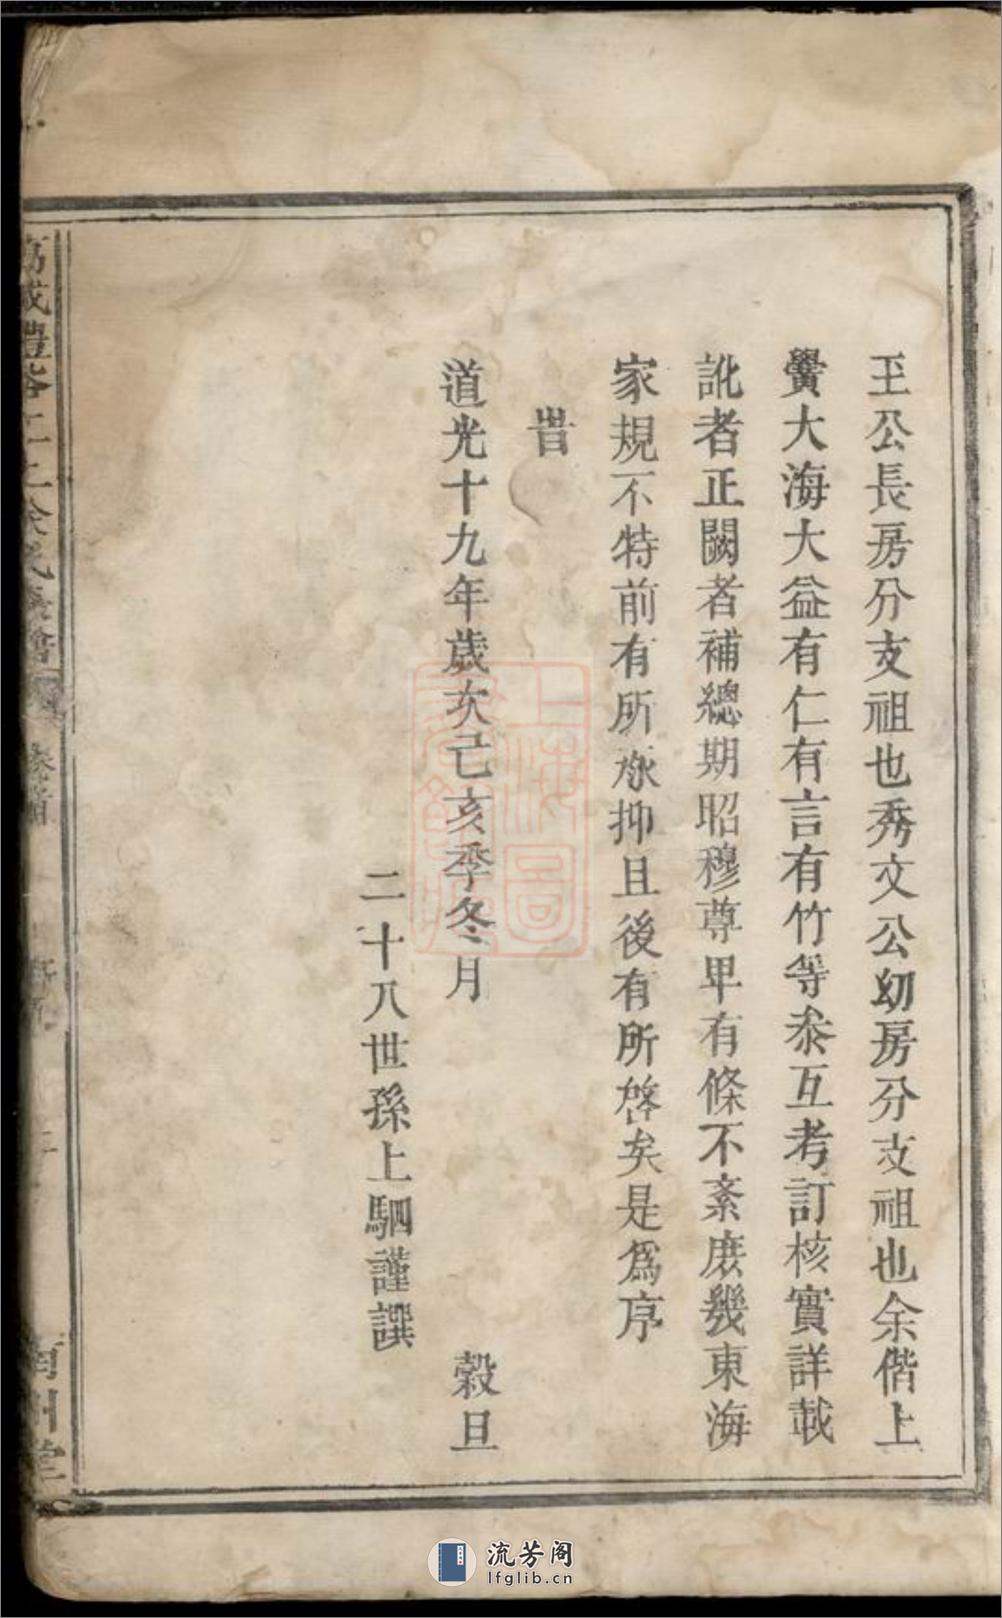 玉公長房分支祖也秀文公幼房分支祖也余偕上
黌大海大益有仁有言有竹等叅互考訂核實詳載
訛者正闕者補總期昭穆尊卑有條不紊庶幾東海
家規不特前有所承抑且後有所啓矣是爲序
旹
道光十九年歲次己亥季冬月 穀旦
二十八世孫上駟謹譔
徐氏
卷首
南州堂
上海圖
書館藏
流芳阁
lfglib.cn